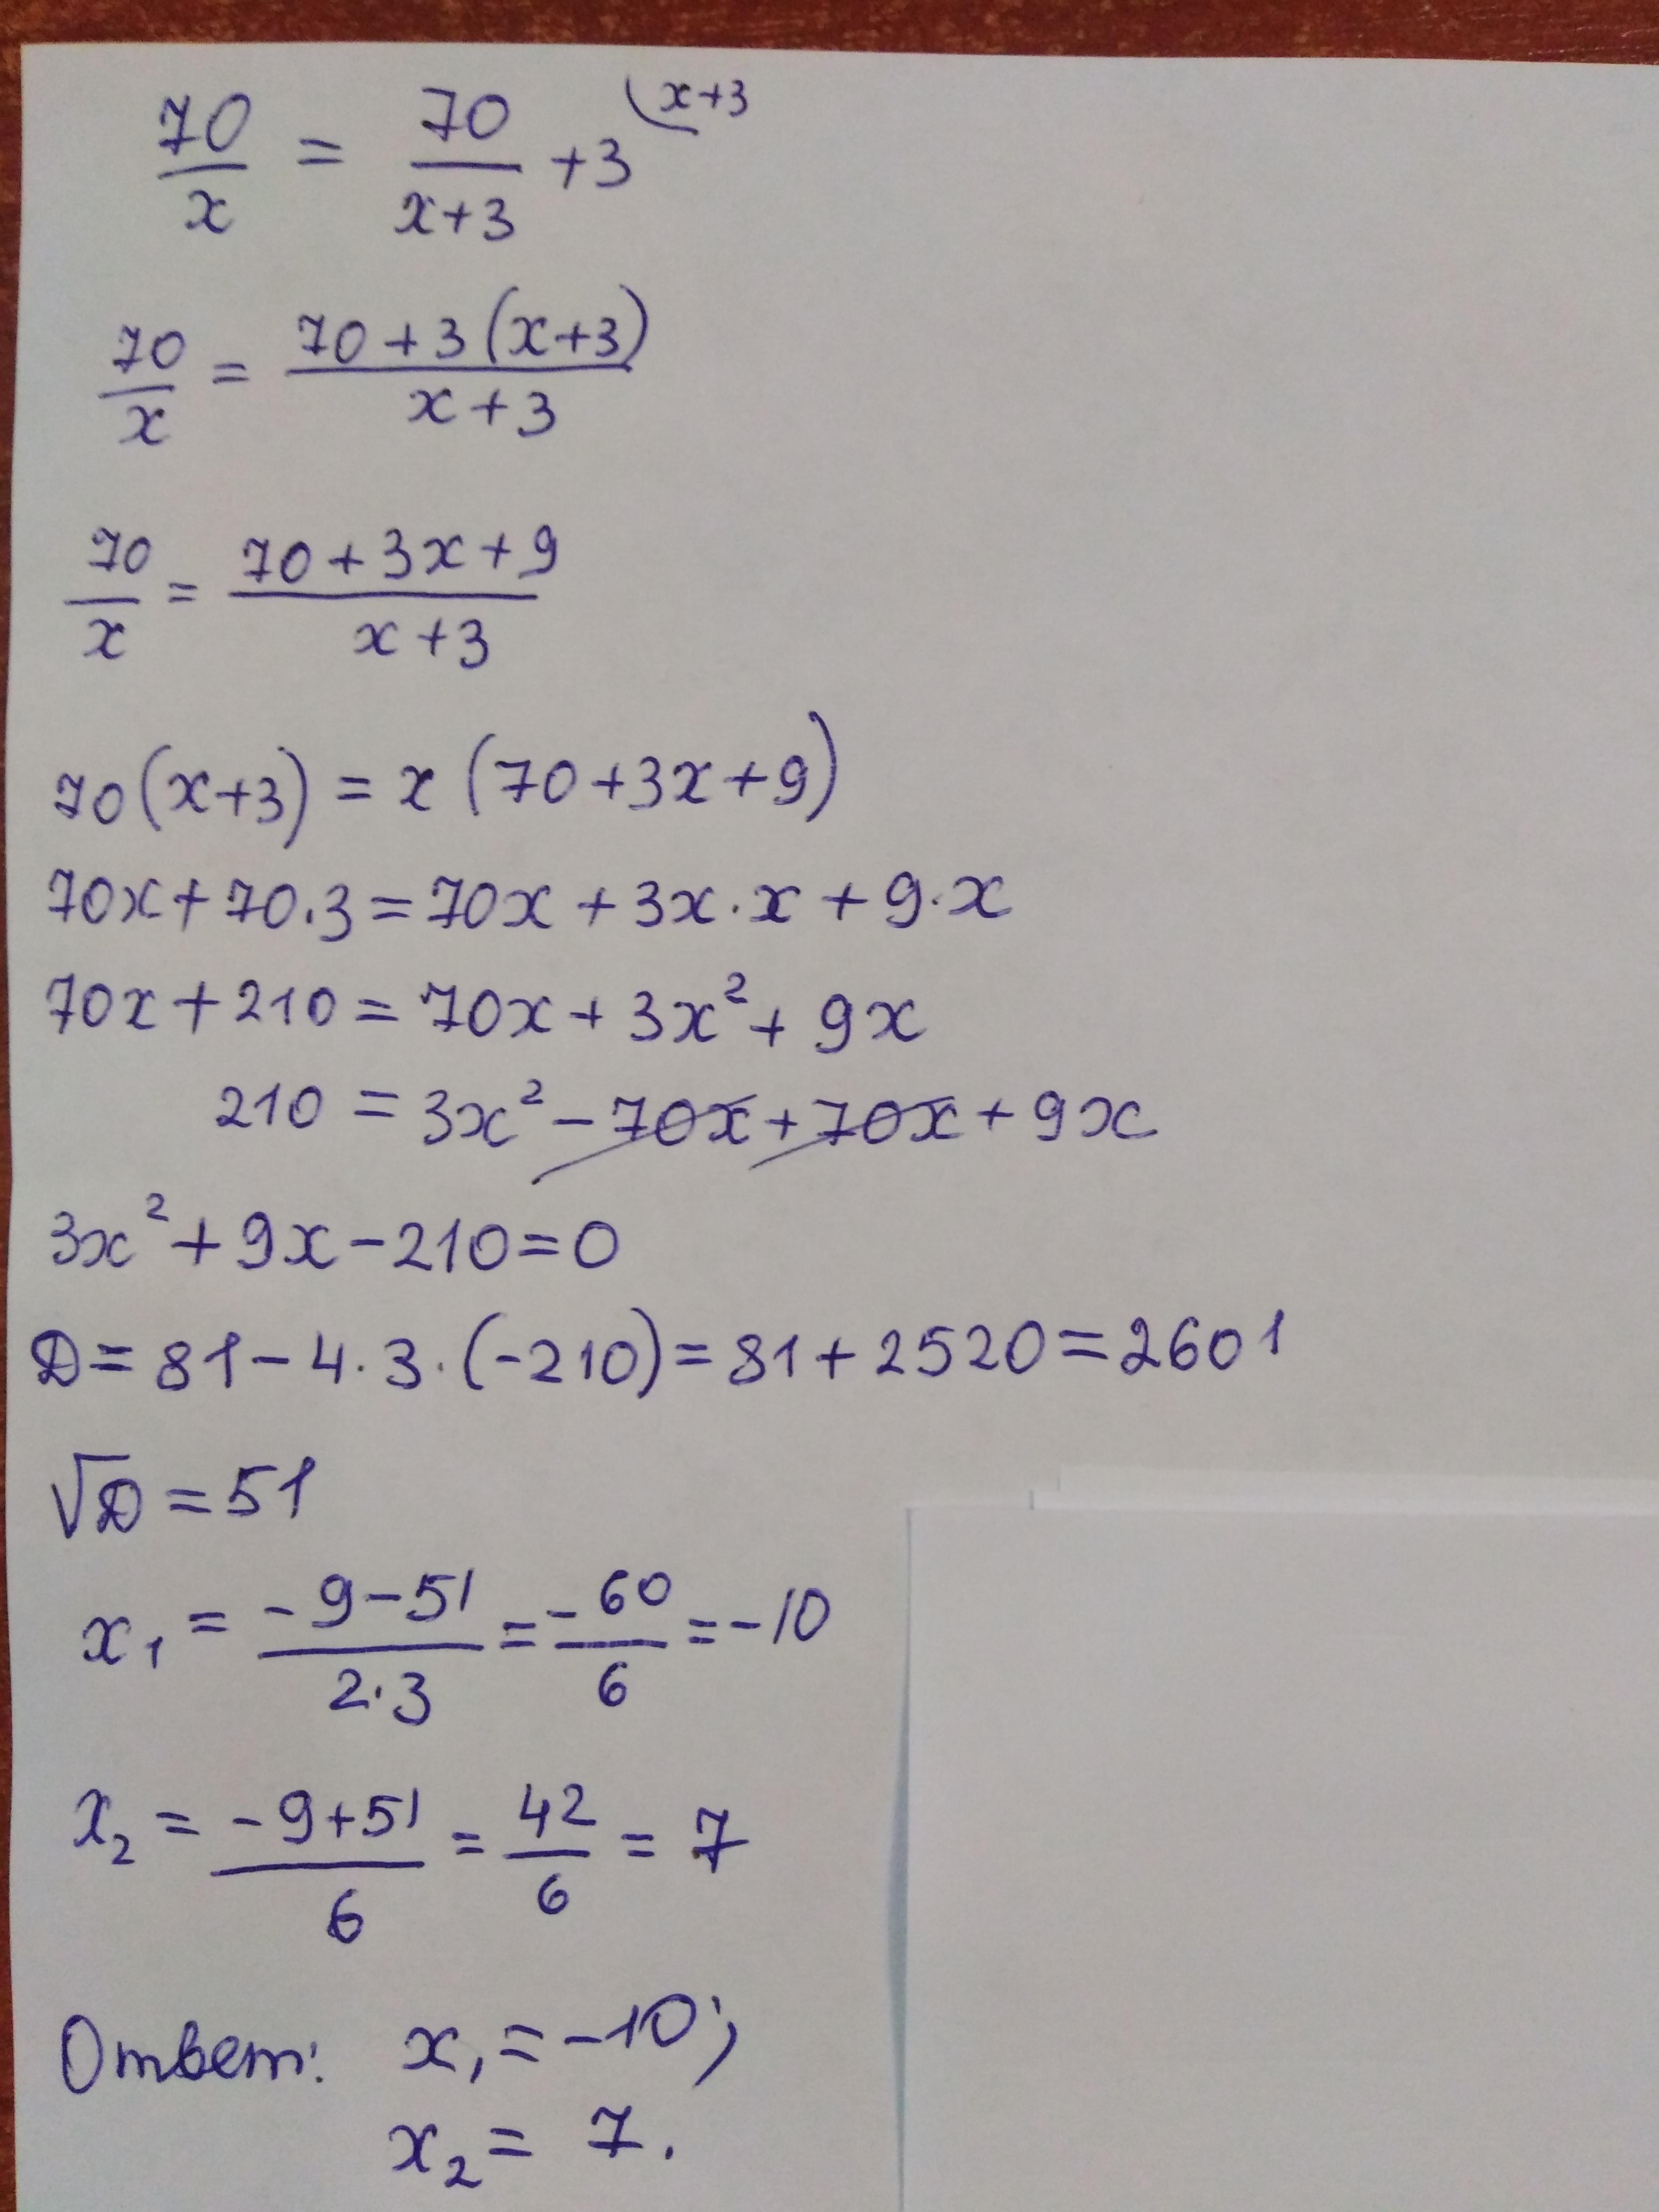 70/x = 70/(x+3) + 3 (x+3
70/x = (70+3(x+3))/(x+3)
70/x = (70+3x+9)/(x+3)
70(x+3) = x(70+3x+9)
70x+70·3=70x+3x·x+9·x
70x+210=70x+3x²+9x
210=3x²-70x+70x+9x
3x²+9x-210=0
D=81-4·3·(-210)=81+2520=2601
√D=51
x₁ = (-9-51)/(2·3) = -60/6 = -10
x₂ = (-9+51)/6 = 42/6 = 7
Ответ: x₁=-10;
x₂= 7.